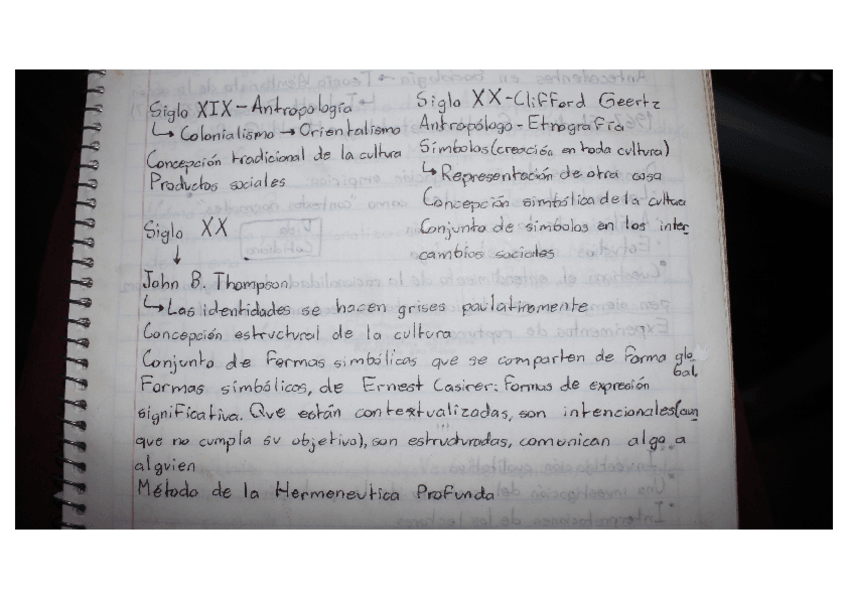 Siglo XIX - Antropología
↳ Colonialismo → Orientalismo
Concepción tradicional de la cultura
Productos sociales
Siglo XX - Clifford Geertz
Antropólogo - Etnografía
Símbolos (creación en toda cultura)
↳ Representación de otra cosa
Concepción simbólica de la cultura
Conjunto de simbolos en los inter
cambios sociales
Siglo XX
↓
John B. Thompson
↳ Las identidades se hacen grises paulatinamente
Concepción estructural de la cultura
Conjunto de formas simbólicas que se comparten de forma glo
bal.
Formas simbólicos, de Ernest Casirer: formas de expresión
significativa. Que están contextualizadas, son intencionales (aun
que no cumpla su objetivo), son estructuradas, comunican algo a
alguien
Método de la Hermeneutica Profunda